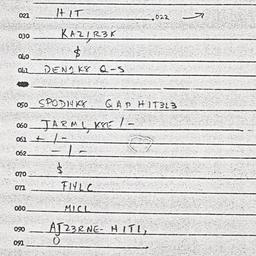 021 HIT .022 →
030 KAZIR3K
040 $
041 DENJK8 Q-S
050 SPODI4K8 GAP HIT3L3
060 JARML, K8E /-
061 + /-
062 -/-
070 $
071 FI4LC
080 MICL
090 AJ23RNE- MITI,
091 0